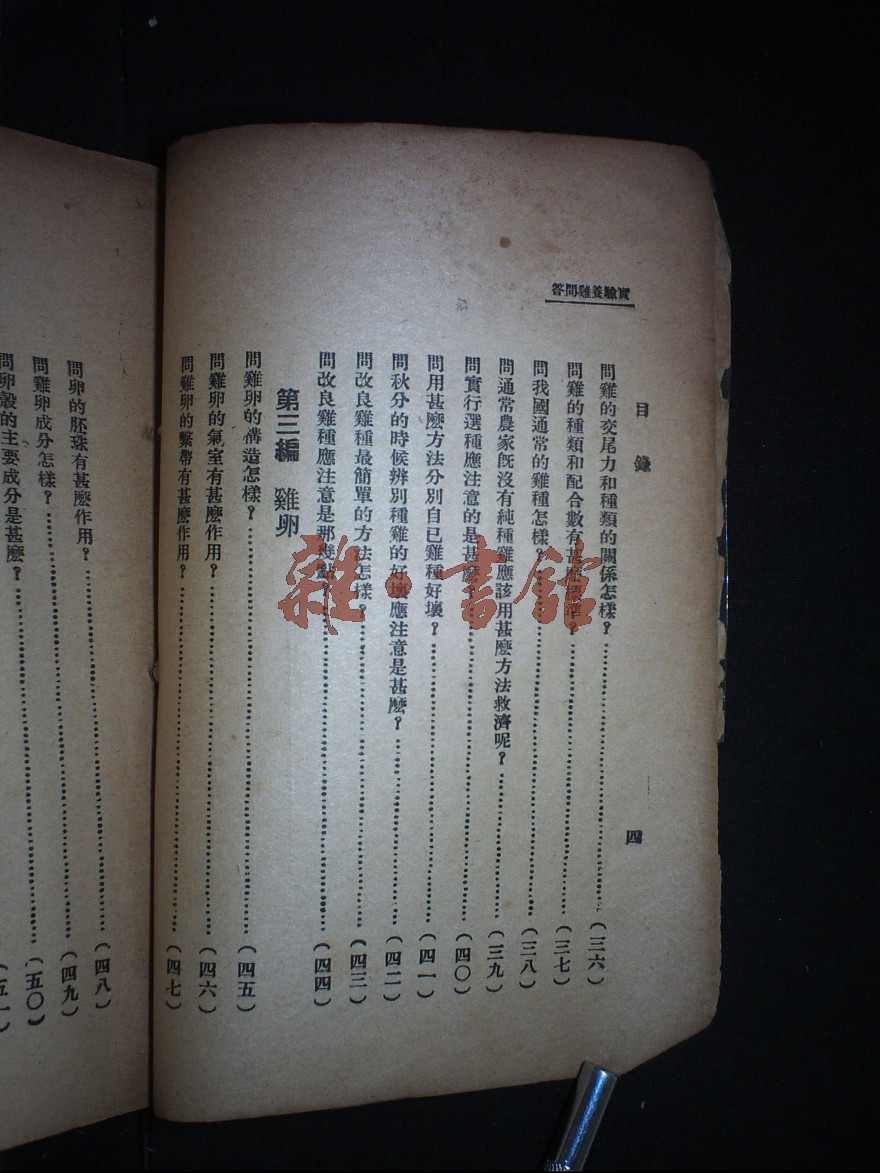 實驗養雞問答
目錄
四
問雞的交尾力和種類的關係怎樣？(三六)
問雞的種類和配合數有甚麼標準？(三七)
問我國通常的雞種怎樣？(三八)
問通常農家旣沒有純種雞應該用甚麼方法救濟呢？(三九)
問實行選種應注意的是甚麼？(四〇)
問用甚麼方法分別自已雞種好壞？(四一)
問秋分的時候辨別種雞的好壞應注意是甚麼？(四二)
問改良雞種最簡單的方法怎樣？(四三)
問改良雞種應注意是那幾點？(四四)
第三編 雞卵
問雞卵的構造怎樣？(四五)
問雞卵的氣室有甚麼作用？(四六)
問雞卵的繫帶有甚麼作用？(四七)
問卵的胚珠有甚麼作用？(四八)
問雞卵成分怎樣？(四九)
問卵殼的主要成分是甚麼？(五〇)
(五一)
雜·書館